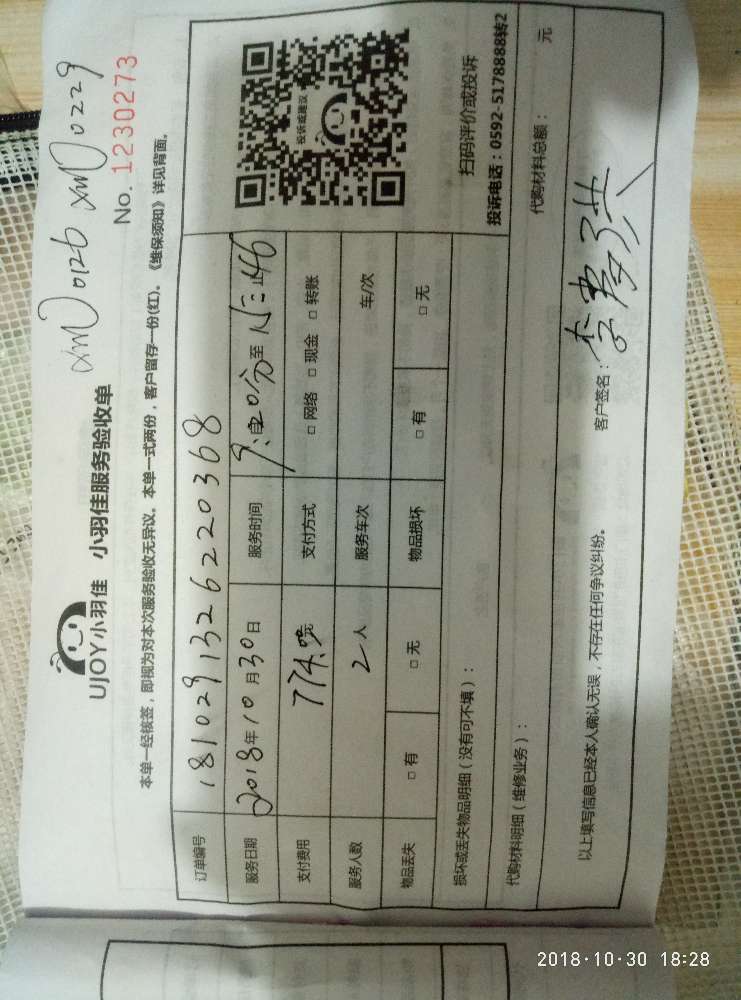 xm0126 xm0229
UJOY小羽佳 小羽佳服务验收单
No. 1230273
本单一经核签，即视为对本次服务验收无异议。本单一式两份，客户留存一份(红)。《维保须知》详见背面。
订单编号 181029132622​0368
服务日期 2018年10月30日 服务时间 自 至 止
支付费用 774.元 支付方式 □ 网络 □ 现金 □ 转账
服务人数 2人 服务车次 车/次
物品丢失 □ 有 □ 无 物品损坏 □ 有 □ 无
投诉或建议
扫码评价或投诉
投诉电话：0592-5178888转2
损坏或丢失物品明细（没有可不填）：
代购材料明细（维修业务）： 代购材料总额： 元
以上填写信息已经本人确认无误，不存在任何争议纠纷。 客户签名：
2018·10·30 18:28